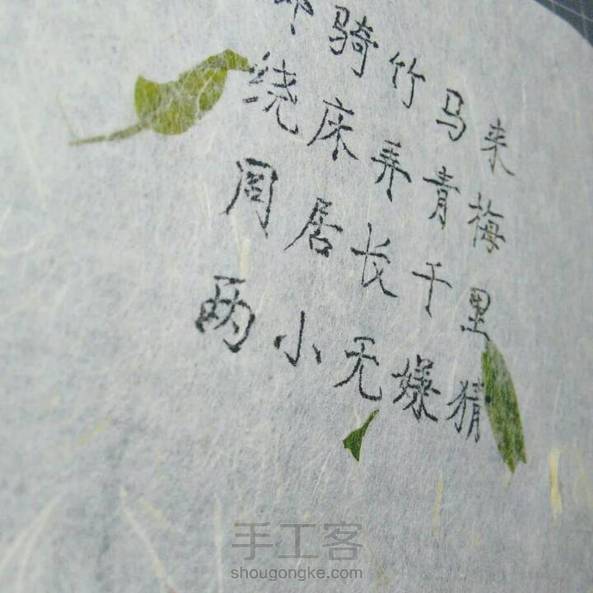 骑竹马来
绕床弄青梅
同居长干里
两小无嫌猜
手工客
shougongke.com